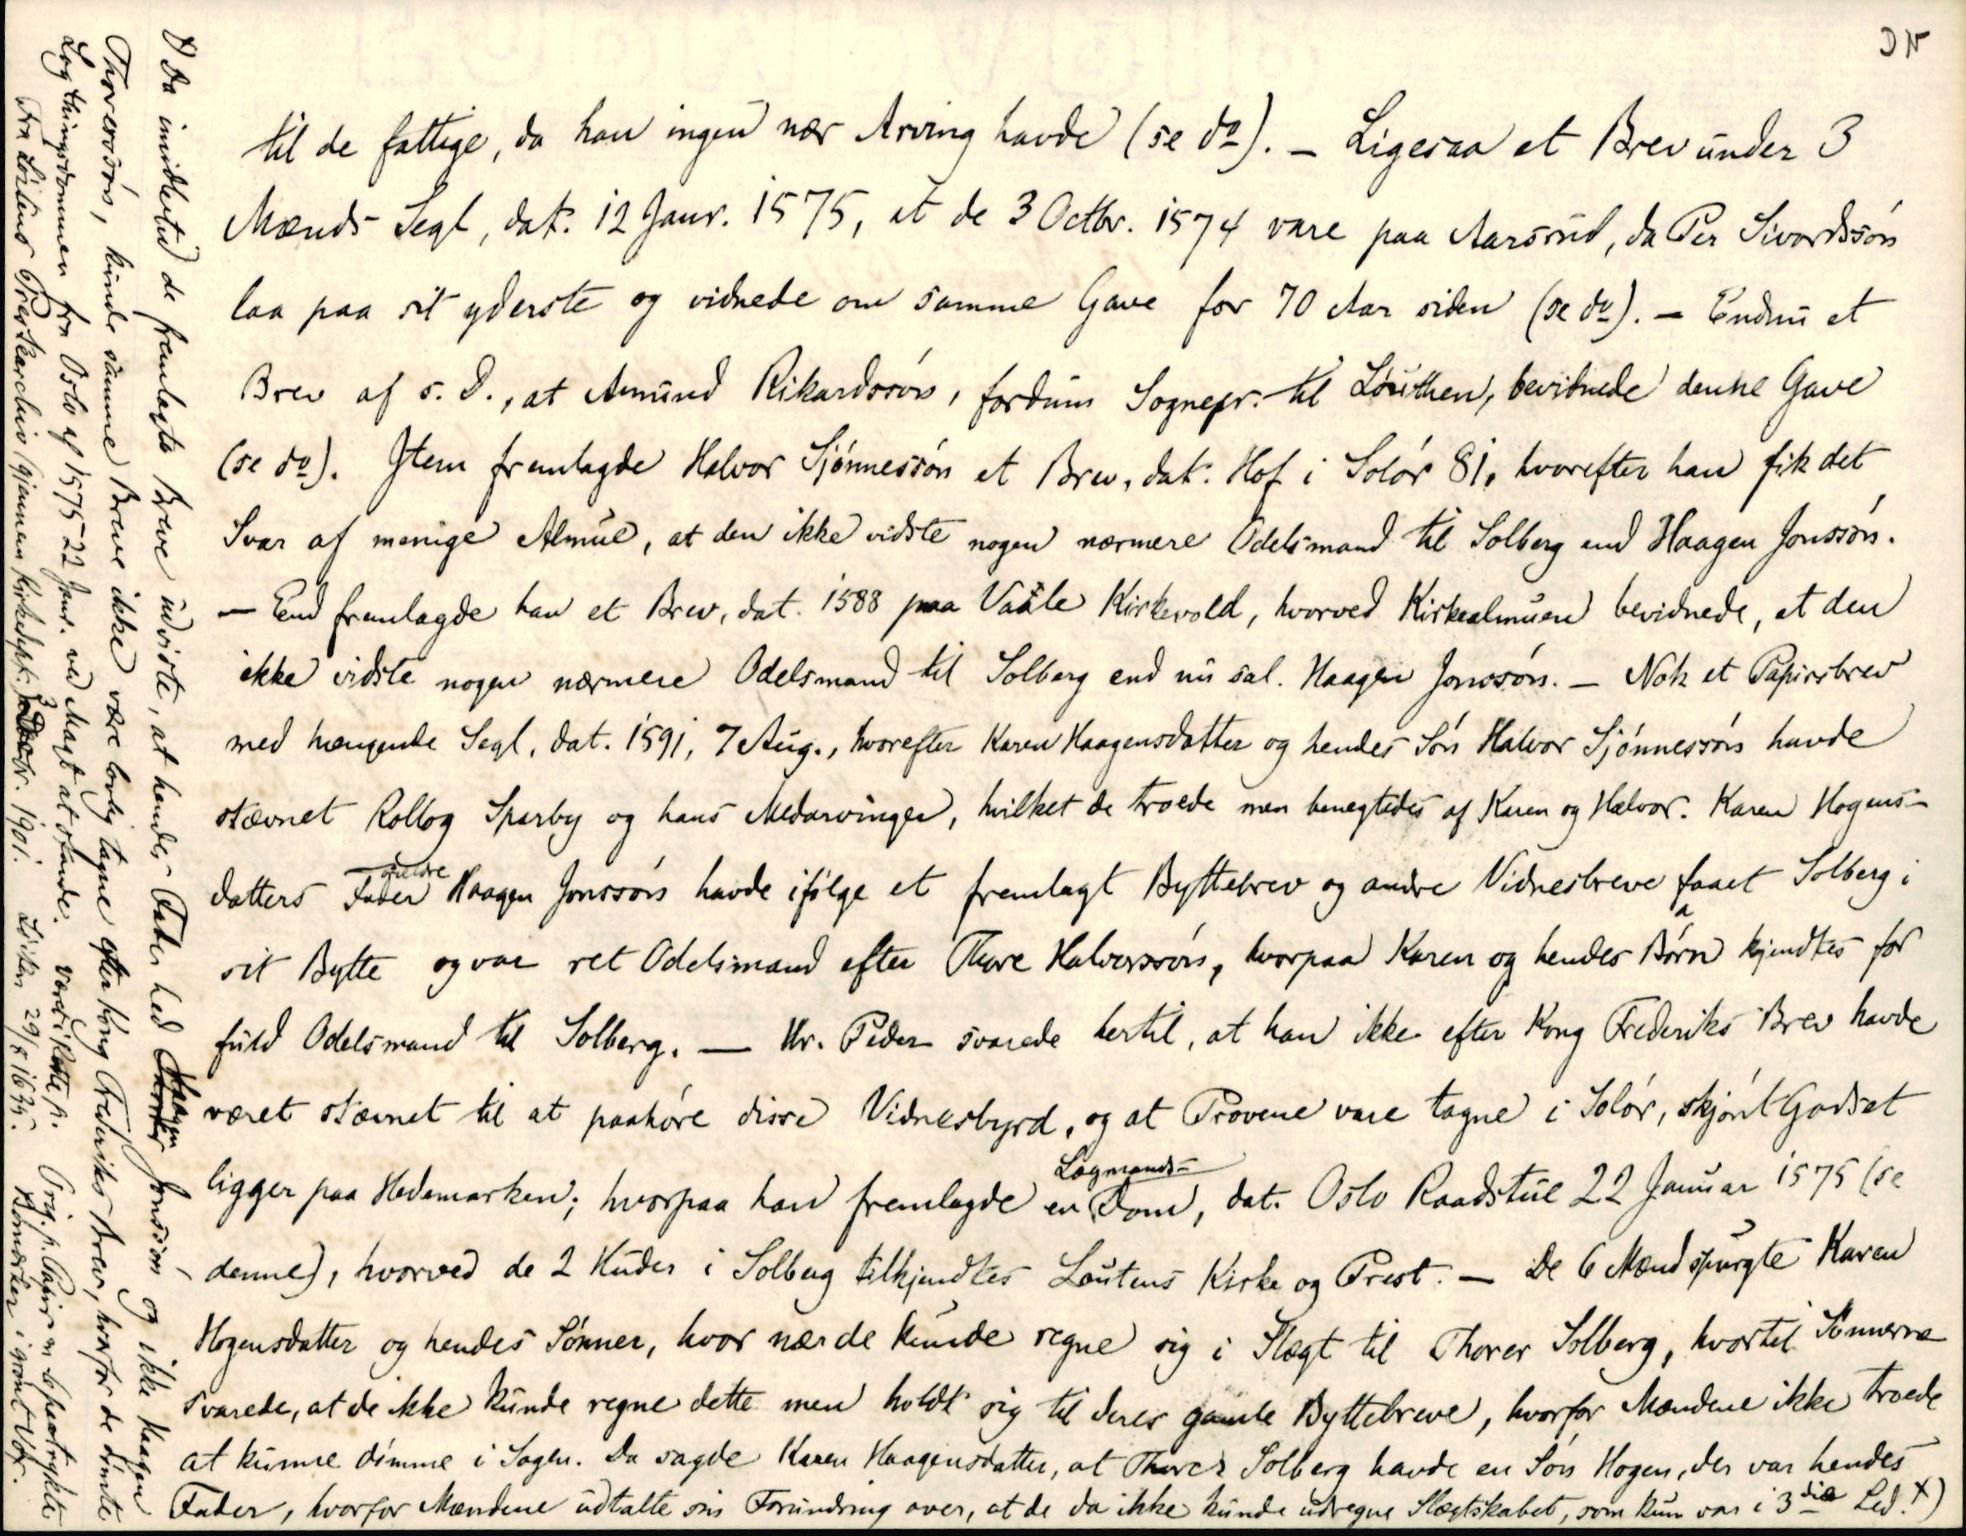 DN
til de fattige, da han ingen nær Arving havde (se do). - Ligesaa et Brev under 3
Mænds Segl, dat. 12 Janr. 1575, at de 3 Octbr. 1574 vare paa Aarsrud, da Per Sivordssön
laa paa sit yderste og vidnede om samme Gave for 70 Aar siden (se do). - Endnu et
Brev af s. D., at Amund Rikardssön, fordum Sognepr. til Löuthen, bevidnede denne Gave
(se do). Item fremlagde Halvor Sjönnessön et Brev, dat. Hof i Solör 81, hvorefter han fik det
Svar af menige Almue, at den ikke vidste nogen nærmere Odelsmand til Solberg end Haagen Jonssön.
- End fremlagde han et Brev, dat. 1588 paa Vaale Kirkevold, hvorved Kirkealmuen bevidnede, at den
ikke vidste nogen nærmere Odelsmand til Solberg end nu sal. Haagen Jonssön. - Nok et Papirsbrev
med hængende Segl, dat. 1591, 7 Aug., hvorefter Karen Haagensdatter og hendes Sön Halvor Sjönnessön havde
stævnet Rollog Sparby og hans Medarvinger, hvilket de troede men benegtedes af Karen og Halvor. Karen Hogens-
datters Fader Haagen Jonssön havde ifölge et fremlagt Byttebrev og andre Vidnesbreve faaet Solberg i
sit Bytte og var ret Odelsmand efter Thore Halvorssön, hvorpaa Karen og hendes Börn kjendtes for
fuld Odelsmand til Solberg. - Hr. Peder svarede hertil, at han ikke efter Kong Frederiks Brev havde
været stævnet til at paahöre disse Vidnesbyrd, og at Prövene vare tagne i Solör, skjönt Godset
ligger paa Hedemarken; hvorpaa han fremlagde en Lagmands-Dom, dat. Oslo Raadstue 22 Januar 1575 (se
denne), hvorved de 2 Huder i Solberg tilkjendtes Löutens Kirke og Prest. - De 6 Mænd spurgte Karen
Hogensdatter og hendes Sönner, hvor nær de kunde regne sig i Slægt til Thorer Solberg, hvortil Sönnerne
svarede, at de ikke kunde regne dette men holdt sig til deres gamle Byttebreve, hvorfor Mændene ikke troede
at kunne dömme i Sagen. Da sagde Karen Haagensdatter, at Thorer Solberg havde en Sön Hogen, der var hendes
Fader, hvorfor Mændene udtalte sin Forundring over, at de da ikke kunde udregne Slægtskabet, som kun var i 3die Led. x)
x) Da imidlertid de fremlagte Breve udviste, at hendes Fader hed Haagen Jonssön og ikke Haagen
Thoressön, kunde samme Breve ikke være lovlig tagne efter Kong Frederiks Brev, hvorfor de dömte
Lagthingsdommen fra Oslo af 1575 22 Janr. ved Magt at stande. Orig. p. Papir m.
Fra Löitens Præstearchiv gjennem Kirkedept. 1901. Löiten 29/8 1634.